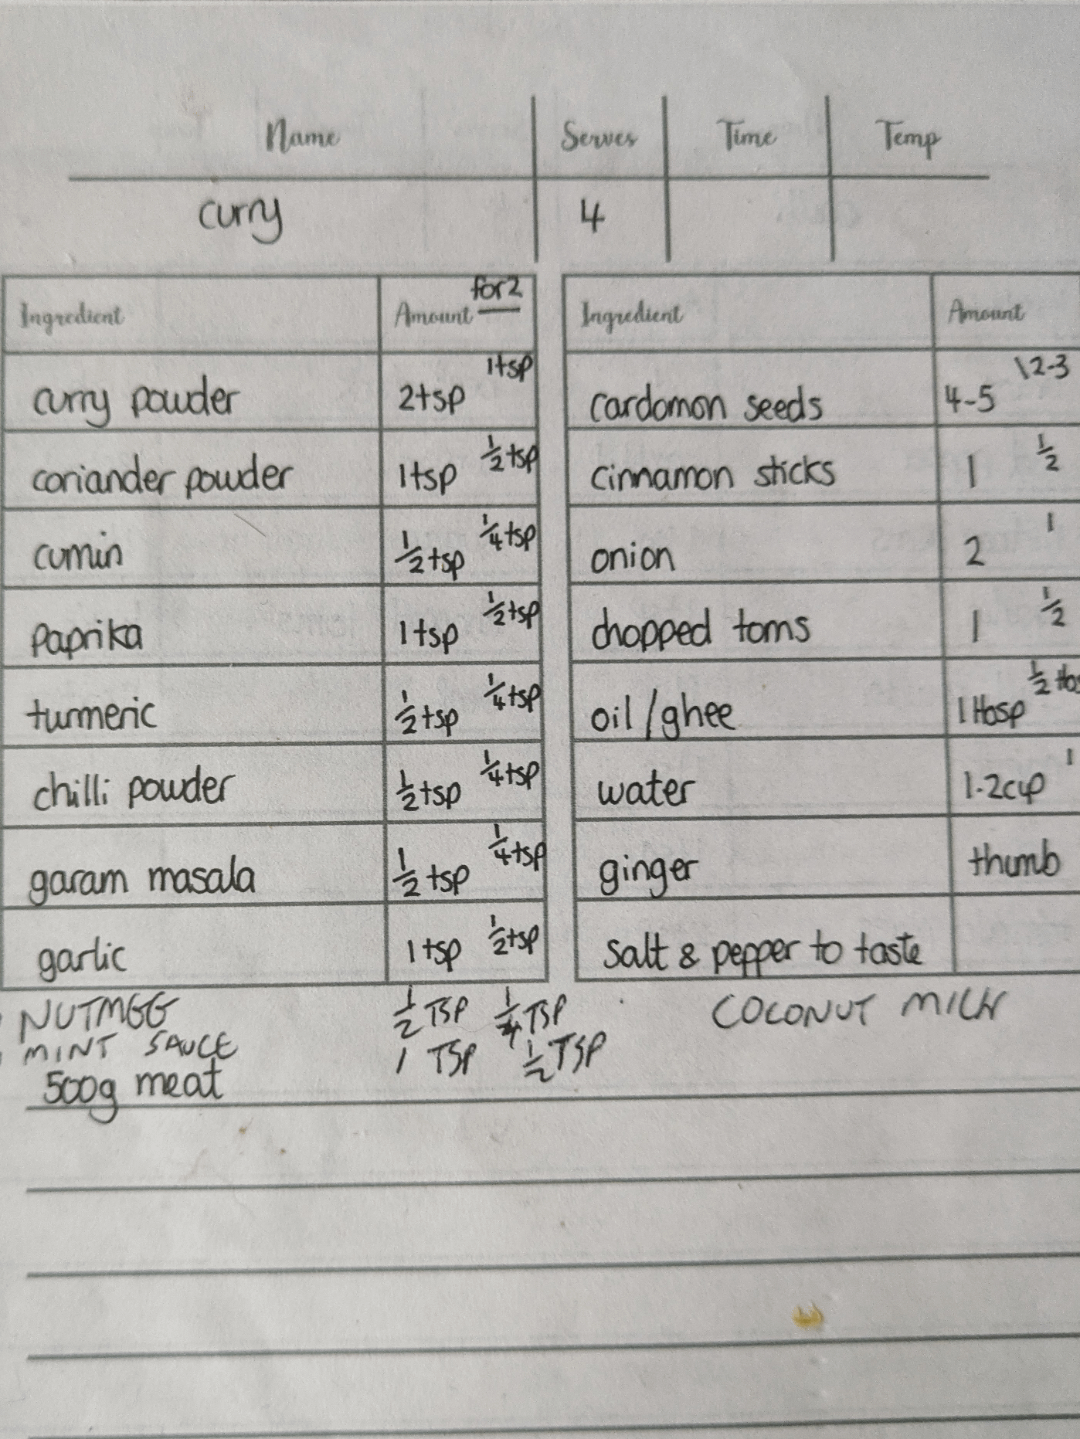 Name Serves Time Temp
curry 4
Ingredient Amount for 2
curry powder 2tsp 1tsp
coriander powder 1tsp ½tsp
cumin ½tsp ¼tsp
paprika 1tsp ½tsp
turmeric ½tsp ¼tsp
chilli powder ½tsp ¼tsp
garam masala ½tsp ¼tsp
garlic 1tsp ½tsp
Ingredient Amount
cardomon seeds 4-5 \2-3
cinnamon sticks 1 ½
onion 2 1
chopped toms 1 ½
oil/ghee 1tbsp ½
water 1-2cup 1
ginger thumb
Salt & pepper to taste
NUTMEG ½ TSP ¼ TSP
MINT SAUCE 1 TSP ½ TSP
500g meat
COCONUT MILK